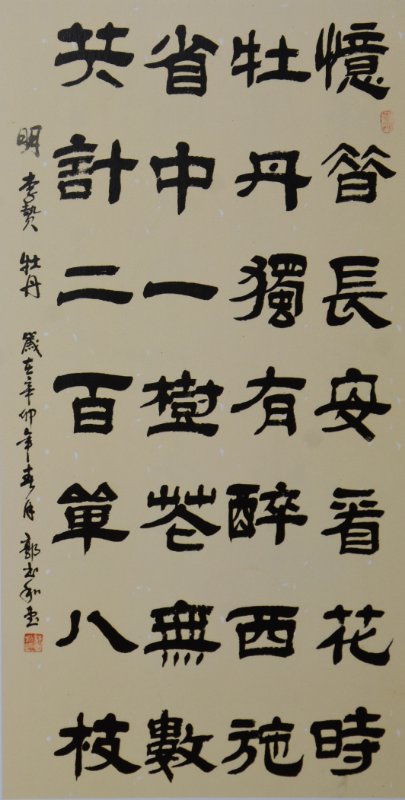 憶昝長安看花時
牡丹獨有醉西施
省中一樹花無數
共計二百單八枝
明 李贄 牡丹 歲在辛卯年春月 郭